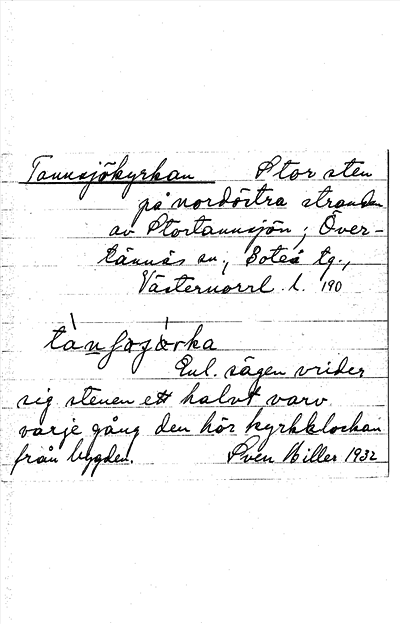 Tannsjökyrkan Stor sten
på nordöstra stranden
av Stortannsjön; Över-
tännäs sn, Boteå tg.,
Västernorrl. l. 190
Enl. sägen vrider
sig stenen ett halvt varv
varje gång den hör kyrkklockan
från bygden. Sven Hiller 1932